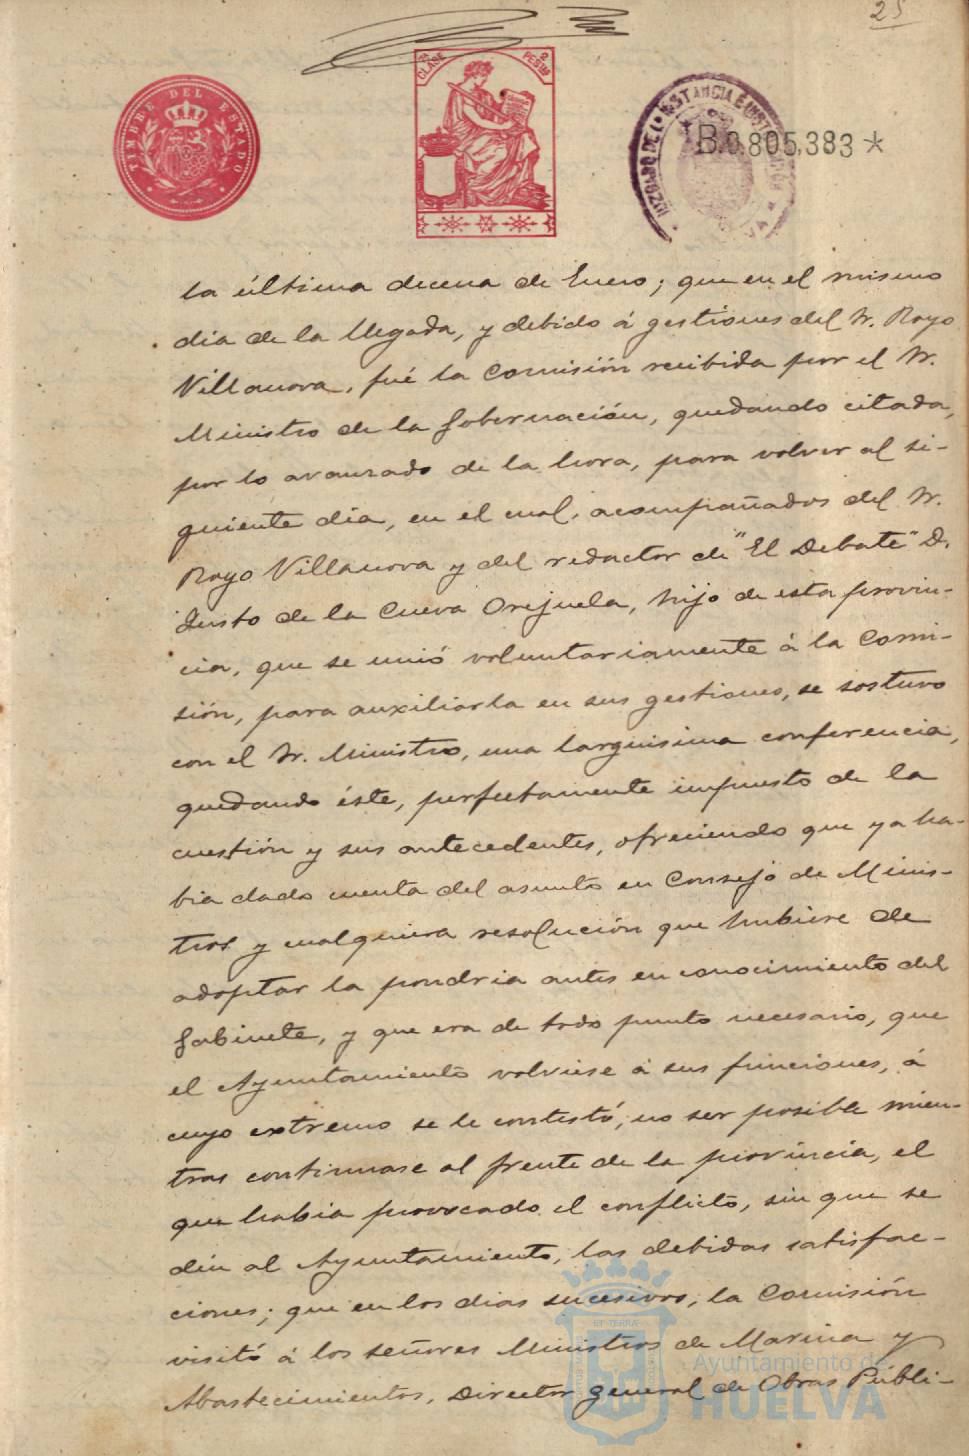 25
TIMBRE DEL ESTADO
7ª CLASE
2 PESETAS
JUZGADO DE 1ª INSTANCIA É INSTRUCCIÓN
B.0.805,383 *
la última decena de Enero; que en el mismo
dia de la llegada, y debido á gestiones del Sr. Royo
Villanova, fué la Comisión recibida por el Sr.
Ministro de la Gobernación, quedando citada,
por lo avanzado de la hora, para volver al si-
guiente dia, en el cual, acompañados del Sr.
Royo Villanova y del redactor de "El Debate" D.
Justo de la Cueva Orejuela, hijo de esta provin-
cia, que se unió voluntariamente á la Comi-
sión, para auxiliarla en sus gestiones, se sostuvo
con el Sr. Ministro, una larguisima conferencia,
quedando éste, perfectamente impuesto de la
cuestión y sus antecedentes, ofreciendo que ya ha-
bia dado cuenta del asunto en Consejo de Minis-
tros y cualquiera resolución que hubiere de
adoptar la pondria antes en conocimiento del
Gabinete, y que era de todo punto necesario, que
el Ayuntamiento volviese á sus funciones, á
cuyo extremo se le contestó, no ser posible mien-
tras continuase al frente de la provincia, el
que habia provocado el conflicto, sin que se
den al Ayuntamiento, las debidas satisfac-
ciones; que en los dias sucesivos, la Comisión
visitó á los señores Ministros de Marina y
Abastecimientos, Director general de Obras Públi-
Ayuntamiento de
HUELVA